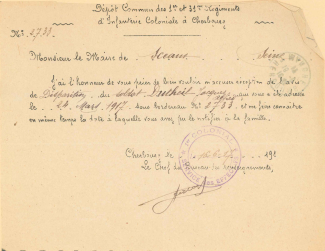 Dépôt Commun des 1er et 31e Régiments
d'Infanterie Coloniale à Cherbourg
N° 2733.
Monsieur le Maire de Sceaux Seine
J'ai l'honneur de vous prier de bien vouloir m'accuser réception de l'avis
de Disparition du soldat Jacques qui vous a été adressé
le 24 Mars 1917 sous bordereau N° 2733 et me faire connaître
en même temps la date à laquelle vous avez pu le notifier à la famille.
Cherbourg le 191
Le Chef du Bureau de Renseignements,